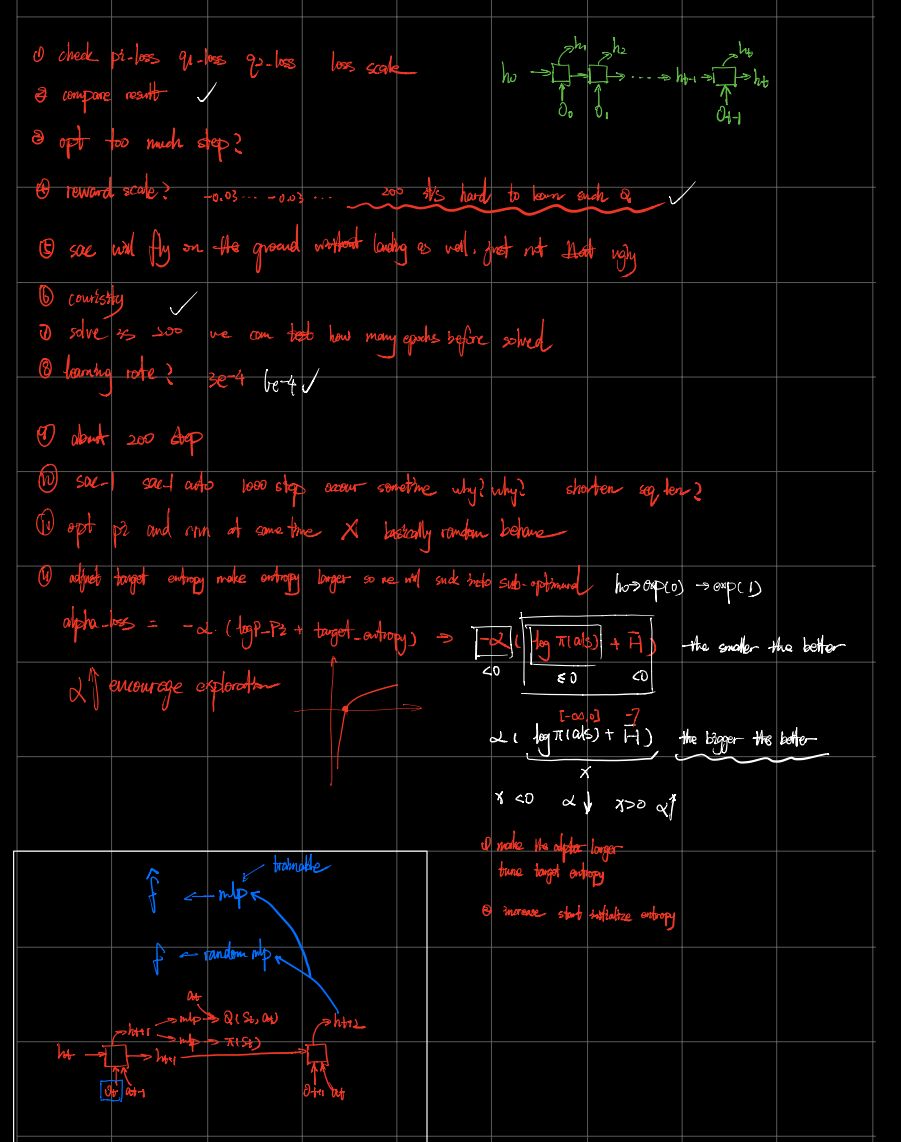 ① check pi-loss q1-loss q2-loss loss scale
② compare result ✓
③ opt too much step?
④ reward scale? -0.03... -0.03 ... 200 hard to learn such Q ✓
⑤ sac will fly on the ground without landing as well, just not that ugly
⑥ courisity ✓
⑦ solve is 200 we can test how many epochs before solved
⑧ learning rate? 3e-4 6e-4 ✓
⑨ about 200 step
⑩ sac-1 sac-1 auto 1000 step occur sometime why? why? shorten seq len?
⑪ opt pi and run at same time X basically random behave
adjust target entropy make entropy larger so we will suck into sub-optimal
h0→exp(0) → exp(1)
alpha_loss = -α (logp_pi + target_entropy) ⇒ -α ( log π(a|s) + H̄ ) the smaller the better
<0 ≤0 <0
α↑ encourage exploration
[-∞,0] -7
α ( log π(a|s) + H̄ ) the bigger the better
x
x <0 α ↓ x>0 α↑
① make the alpha larger
tune target entropy
② increase start initialize entropy
h0 h1 h2 ht-1 ht ht
O0 O1 Ot-1
trainable
f̂ ← mlp
f ← random mlp
at
ht+1 → mlp → Q(St, at)
→ mlp → π(St)
ht → → ht+1 → ht+2
Ot at-1 Ot+1 at